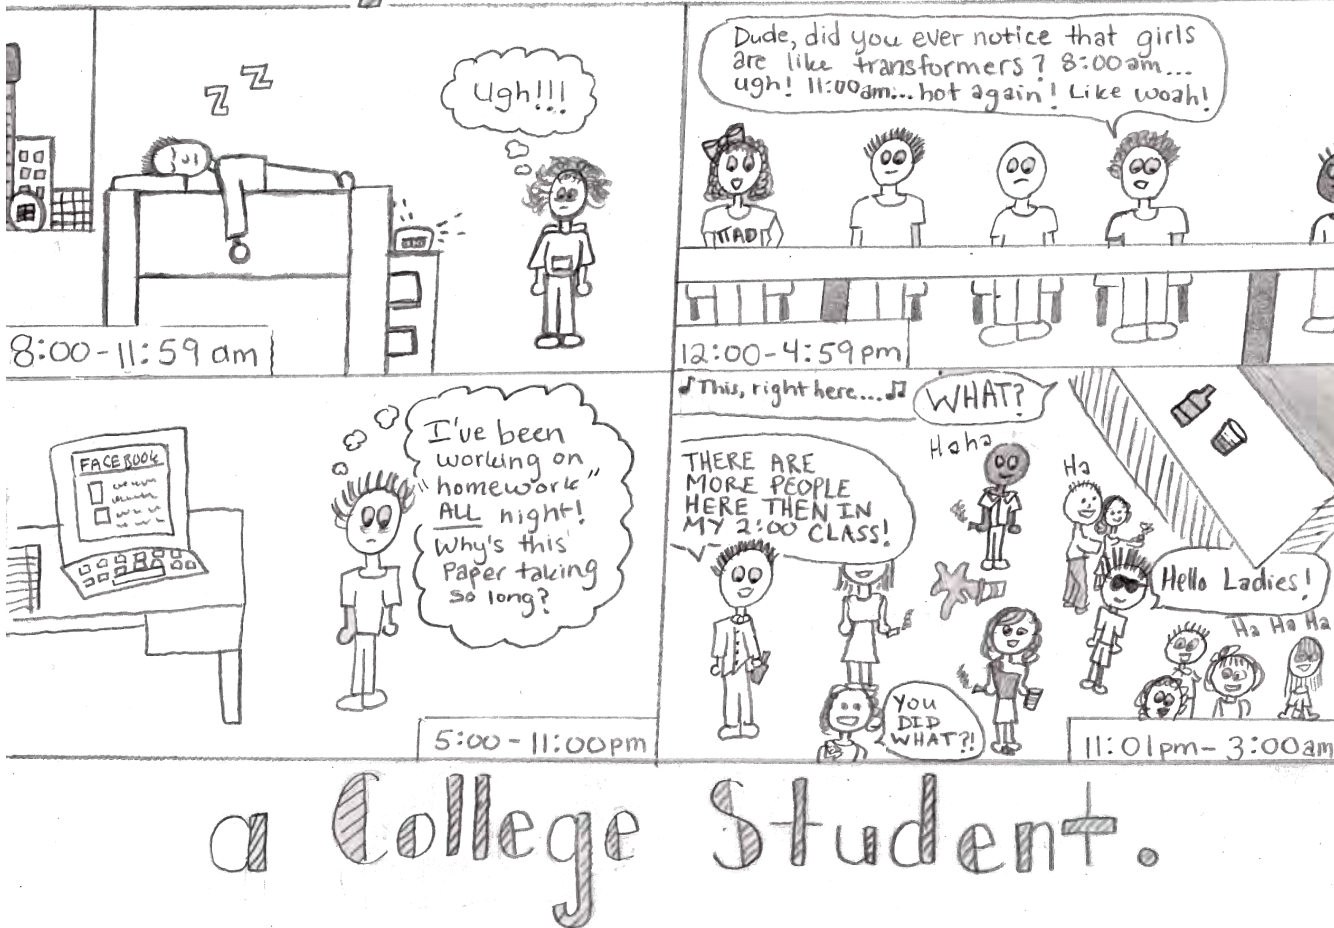 Z Z
Ugh!!!
8:00-11:59 am
Dude, did you ever notice that girls
are like transformers? 8:00am...
ugh! 11:00am...hot again! Like woah!
12:00-4:59pm
FACEBOOK
I've been
working on
"homework"
ALL night!
Why's this
Paper taking
so long?
5:00-11:00pm
♪This, right here....♫
WHAT?
THERE ARE
MORE PEOPLE
HERE THEN IN
MY 2:00 CLASS!
Haha
Ha
Hello Ladies!
Ha Ha Ha
YOU
DID
WHAT?!
11:01pm-3:00am
a College Student.